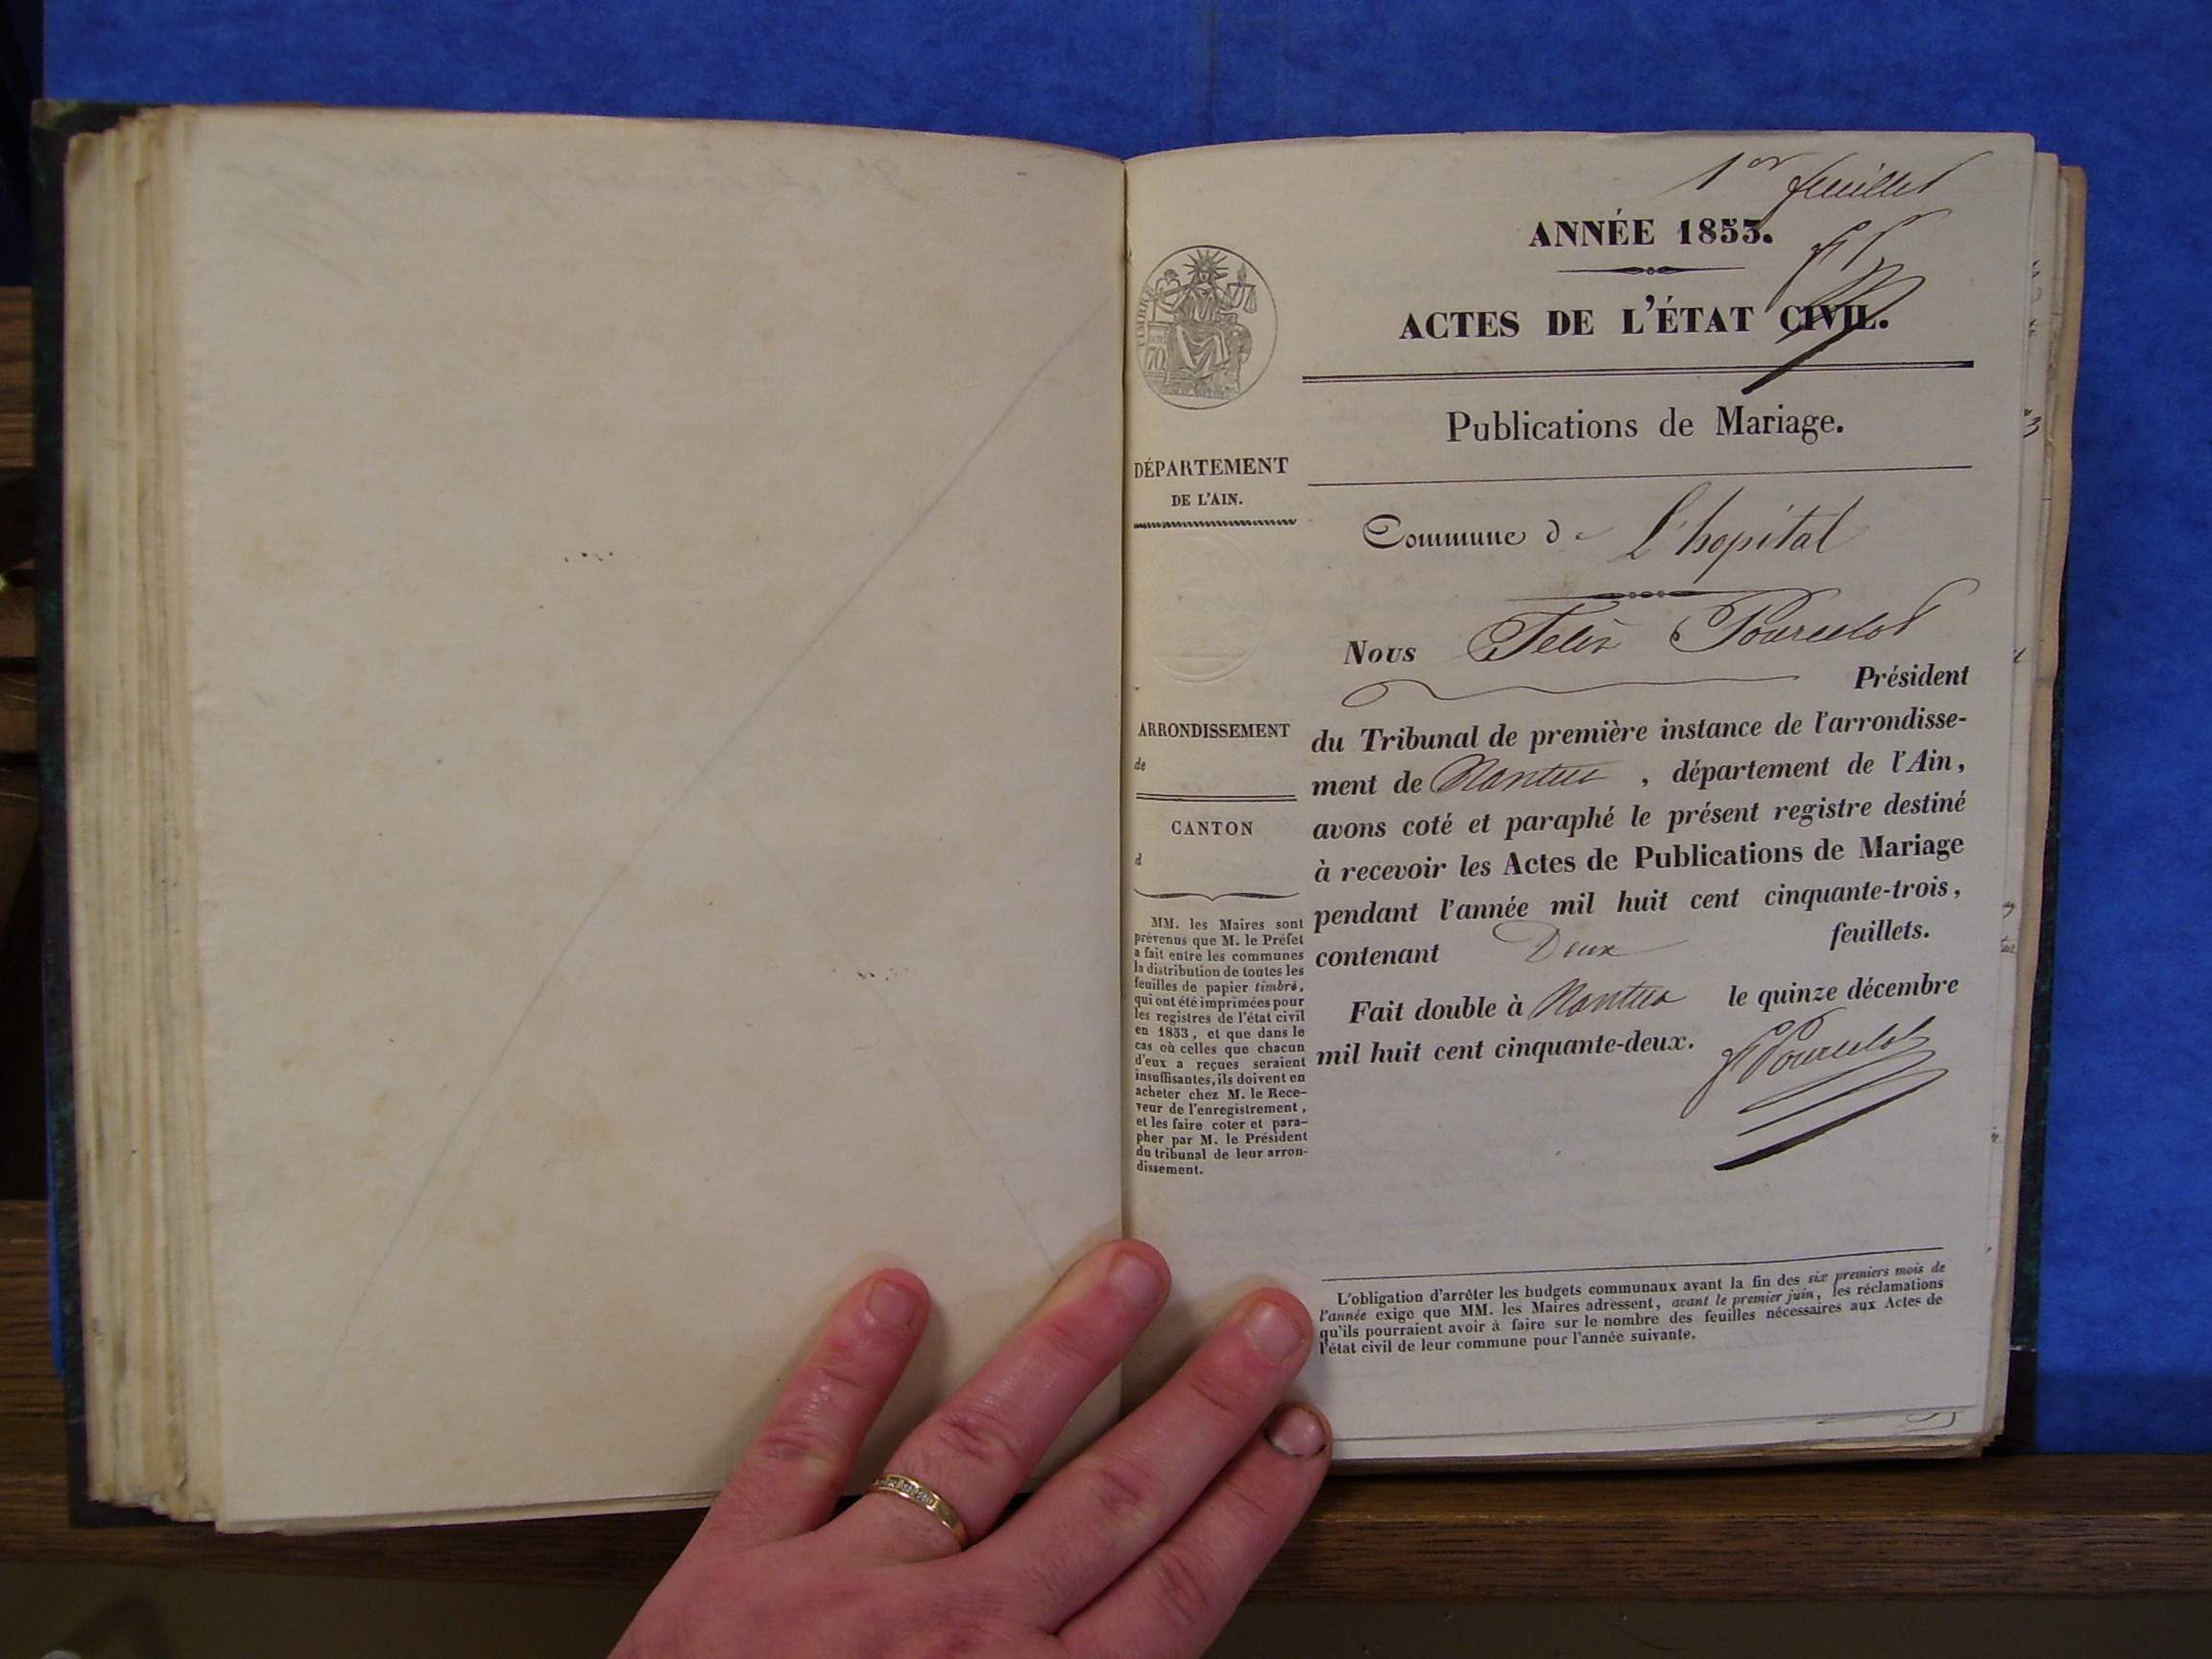 1er feuillet
ANNÉE 1853.
ACTES DE L'ÉTAT CIVIL.
Publications de Mariage.
Commune de L'hopital
Nous Felix Pourcelot
Président
du Tribunal de première instance de l'arrondisse-
ment de Nantua, département de l'Ain,
avons coté et paraphé le présent registre destiné
à recevoir les Actes de Publications de Mariage
pendant l'année mil huit cent cinquante-trois,
contenant Deux feuillets.
Fait double à Nantua le quinze décembre
mil huit cent cinquante-deux.
F Pourcelot
TIMBRE
70
DÉPARTEMENT
DE L'AIN.
ARRONDISSEMENT
de
CANTON
d
MM. les Maires sont
prévenus que M. le Préfet
a fait entre les communes
la distribution de toutes les
feuilles de papier timbré,
qui ont été imprimées pour
les registres de l'état civil
en 1853, et que dans le
cas où celles que chacun
d'eux a reçues seraient
insuffisantes, ils doivent en
acheter chez M. le Rece-
veur de l'enregistrement,
et les faire coter et para-
pher par M. le Président
du tribunal de leur arron-
dissement.
L'obligation d'arrêter les budgets communaux avant la fin des six premiers mois de
l'année exige que MM. les Maires adressent, avant le premier juin, les réclamations
qu'ils pourraient avoir à faire sur le nombre des feuilles nécessaires aux Actes de
l'état civil de leur commune pour l'année suivante.